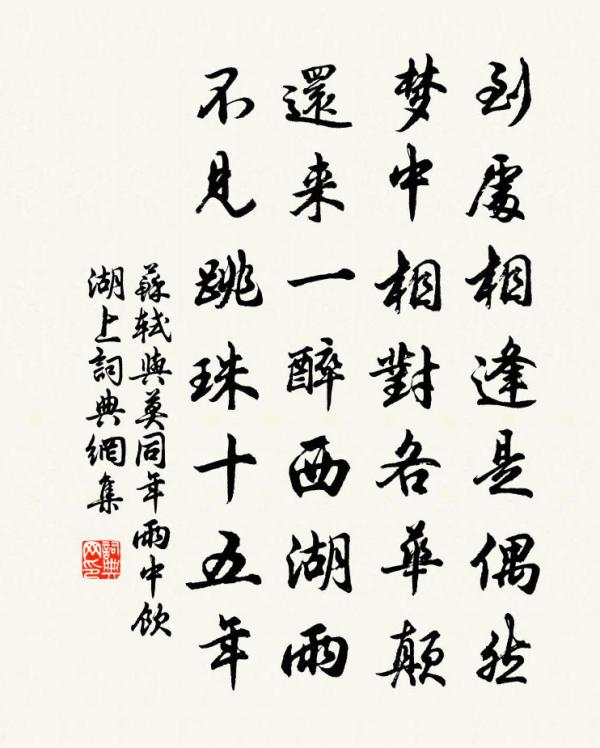 到處相逢是偶然
梦中相對各華顛
還来一醉西湖雨
不見跳珠十五年
蘇軾與莫同年雨中飲
湖上詞典網集
詞典网印